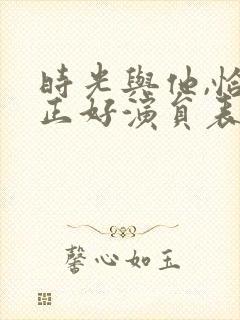 時光與他,恰
正好演員表
馨心如玉